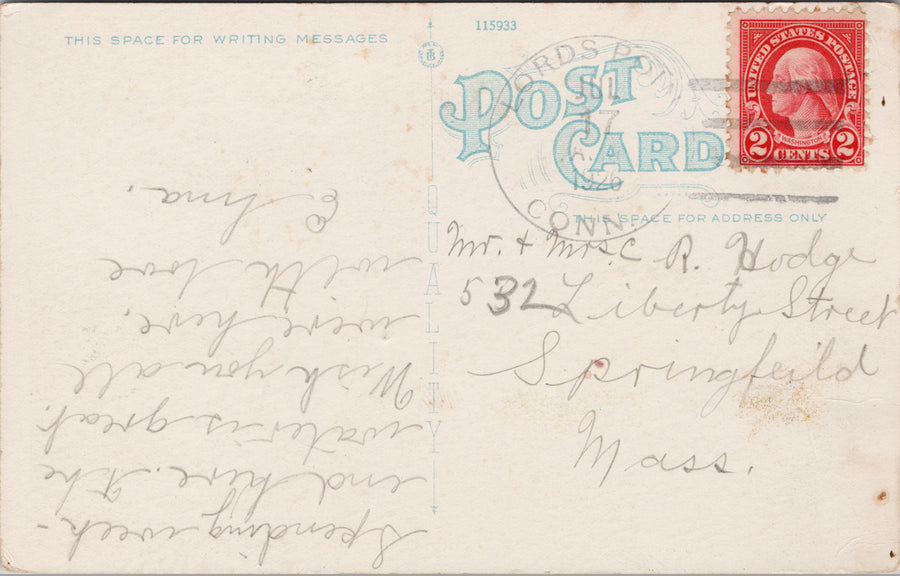 THIS SPACE FOR WRITING MESSAGES
115933
POST CARD
LORDS POINT
JUL
17
A.M.
1926
CONN.
UNITED STATES POSTAGE
WASHINGTON
2 CENTS 2
THIS SPACE FOR ADDRESS ONLY
QUALITY
Mr. + Mrs. C R. Hodge
532 Liberty Street
Springfeild
Mass.
Spending week-
end here. The
water is great.
Wish you all
were here.
with love